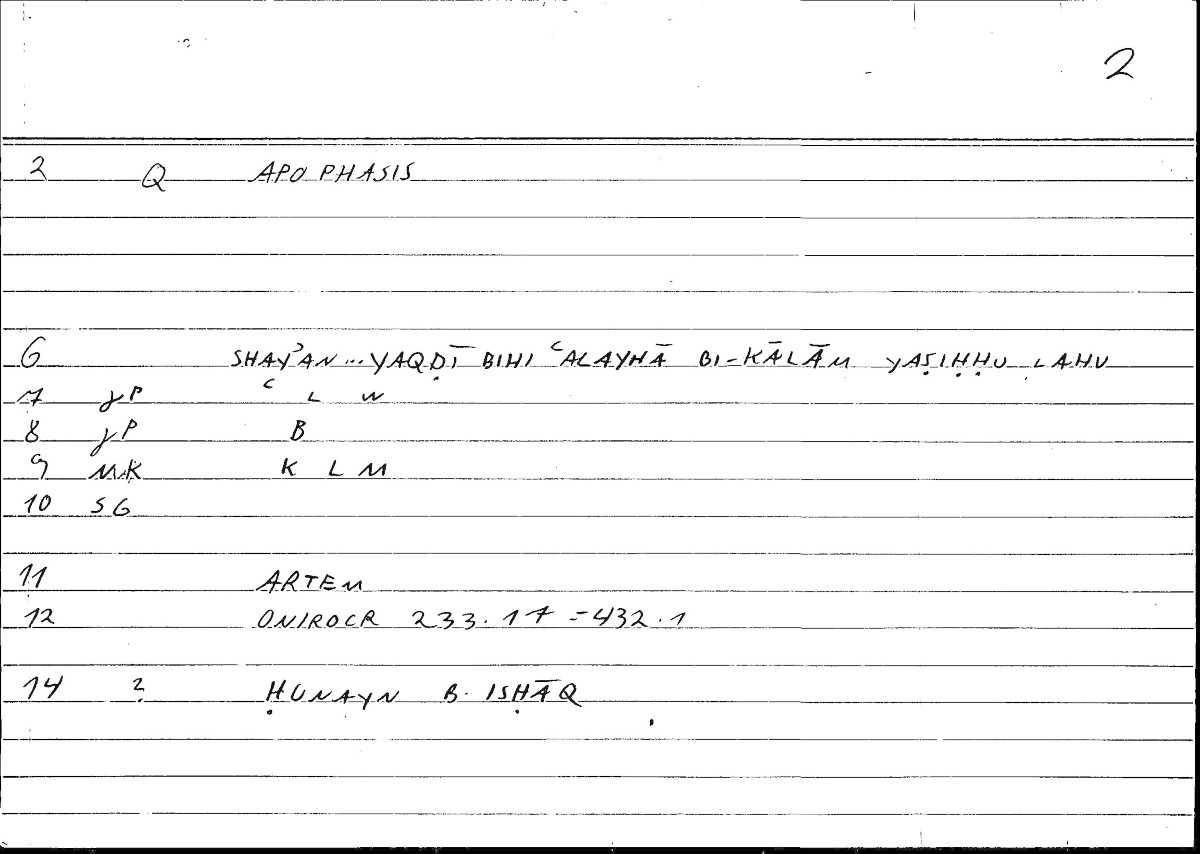 2
2 Q APOPHASIS
6 SHAYʾAN...YAQḌĪ BIHI ʿALAYHĀ BI-KĀLĀM YAṢIḤḤU LAHU
7 γP ʿ L W
8 γP B
9 MK K L M
10 SG
11 ARTEM
12 ONIROCR 233.17 = 432.1
14 ? ḤUNAYN B. ISḤĀQ